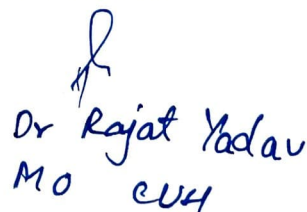 Dr Rajat Yadav
MO CUH